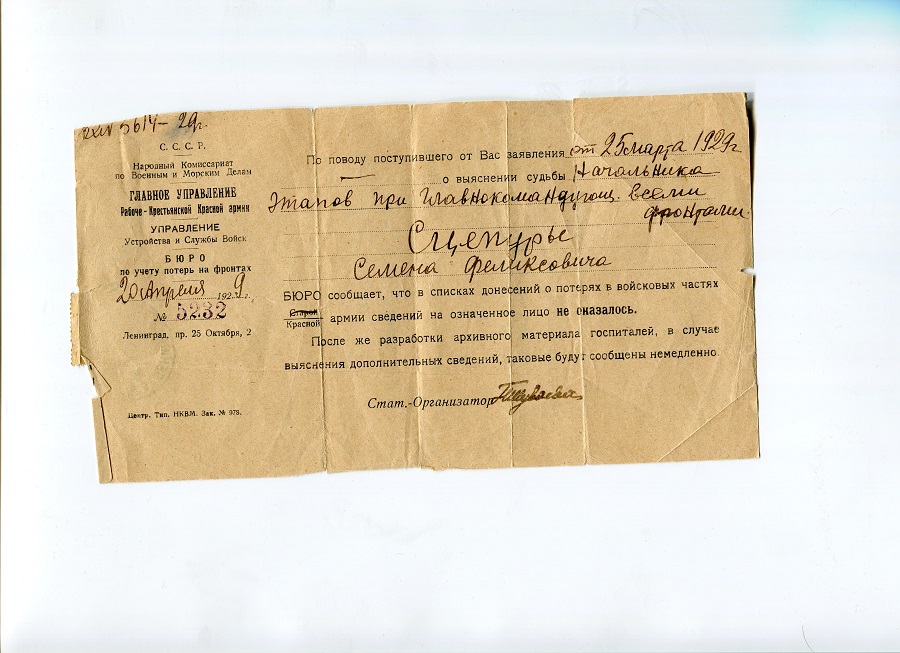 5614 - 29г.
С. С. С. Р.
Народный Комиссариат
по Военным и Морским Делам
ГЛАВНОЕ УПРАВЛЕНИЕ
Рабоче-Крестьянской Красной армии
УПРАВЛЕНИЕ
Устройства и Службы Войск
БЮРО
по учету потерь на фронтах
20 Апреля 1929 г.
№ 5232
Ленинград, пр. 25 Октября, 2
Центр. Тип. НКВМ. Зак. № 978.
По поводу поступившего от Вас заявления от 25 марта 1929 г
о выяснении судьбы Начальника
Этапов при Главнокомандующ. всеми
фронтами
Сцепуры
Семена Феликсовича
БЮРО сообщает, что в списках донесений о потерях в войсковых частях
Старой
Красной армии сведений на означенное лицо не оказалось.
После же разработки архивного материала госпиталей, в случае
выяснения дополнительных сведений, таковые будут сообщены немедленно.
Стат.-Организатор